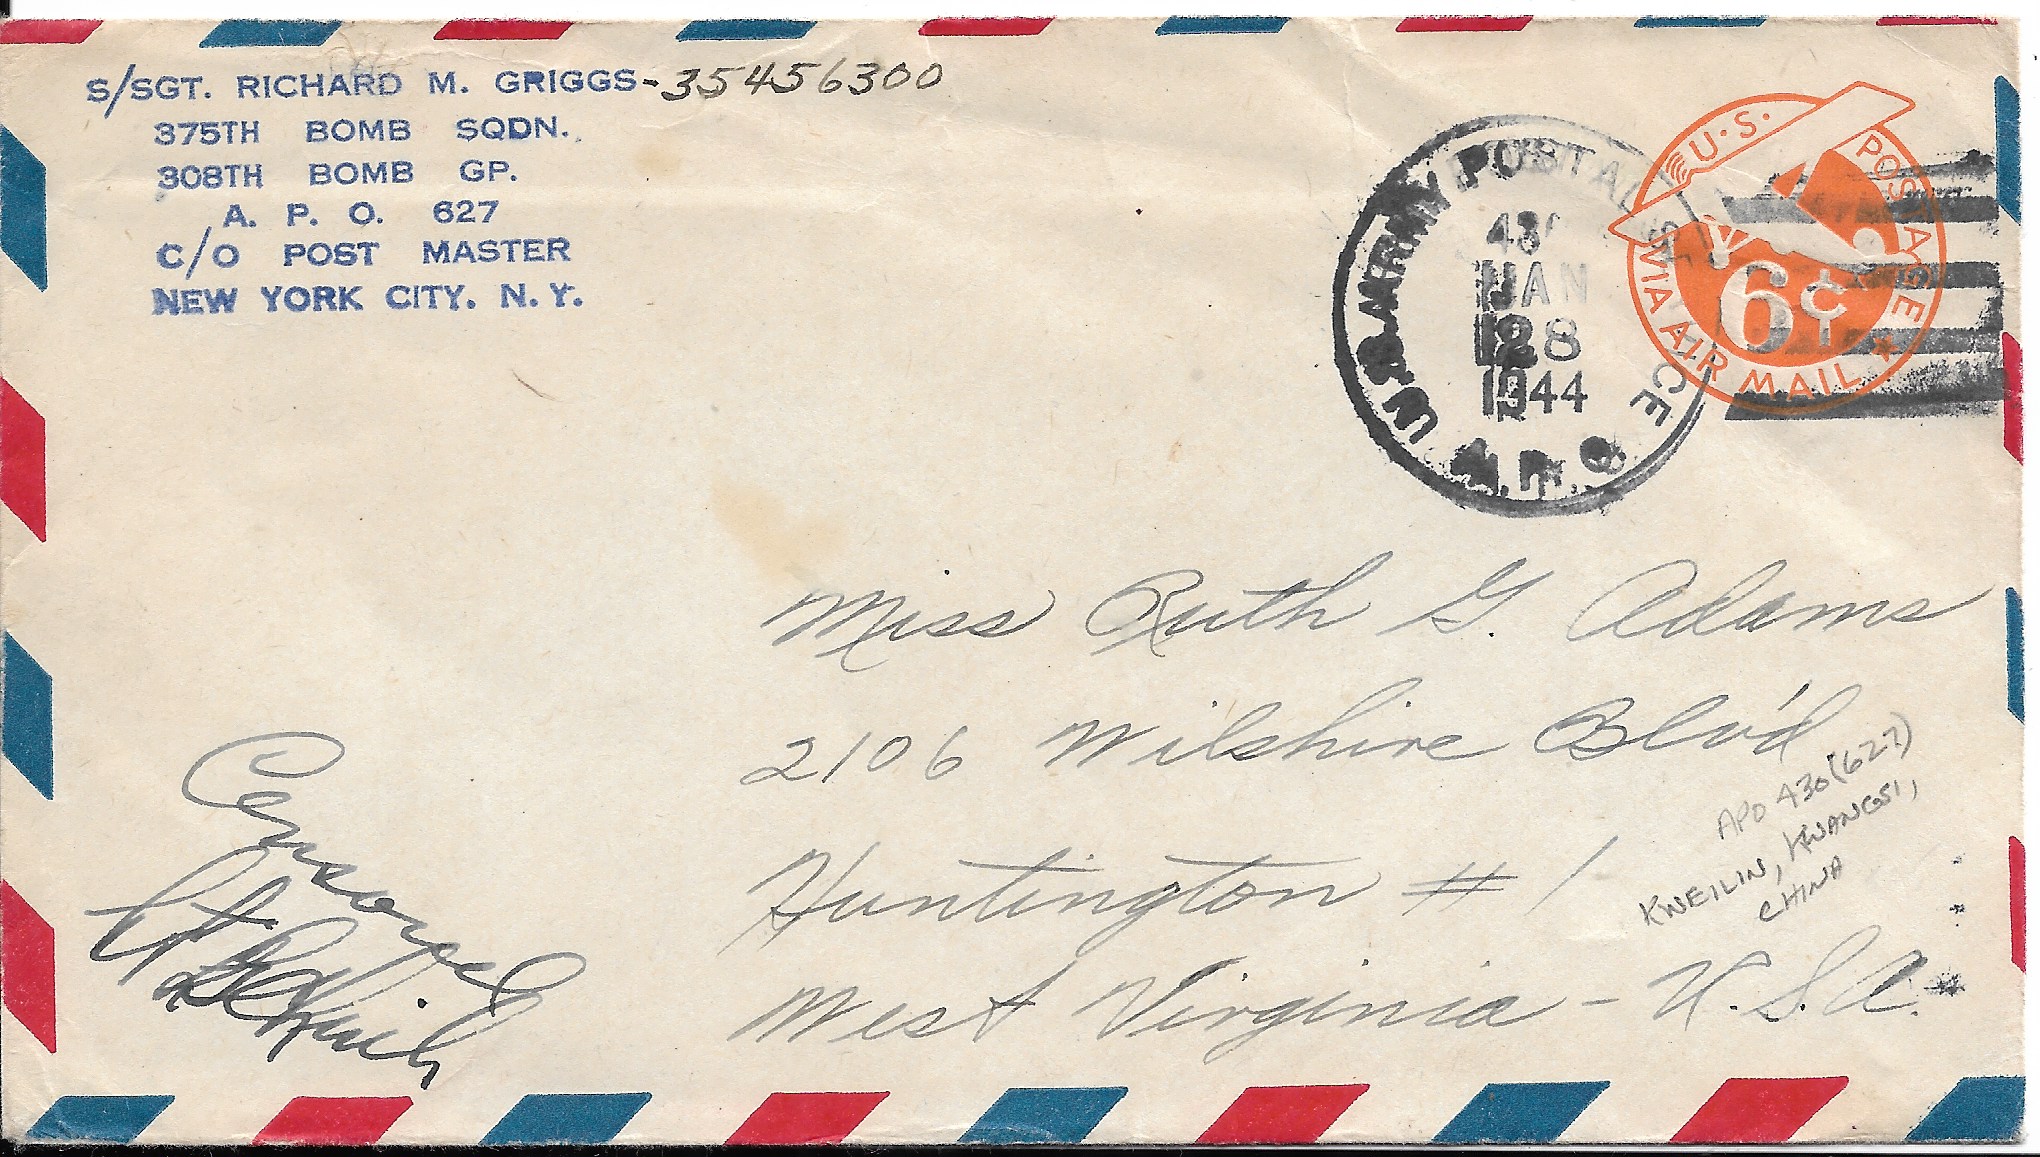 S/SGT. RICHARD M. GRIGGS-35456300
375TH BOMB SQDN.
308TH BOMB GP.
A. P. O. 627
C/O POST MASTER
NEW YORK CITY. N. Y.
U.S. ARMY POSTAL
CE
A.P.O.
JAN
1944
U.S. POSTAGE
6¢
VIA AIR MAIL
Miss Ruth G. Adams
2106 Wilshire Blv'd
Huntington # 1
West Virginia - U.S.A.
APO 430 (627)
KWEILIN, KWANGSI,
CHINA
Censored
Lt